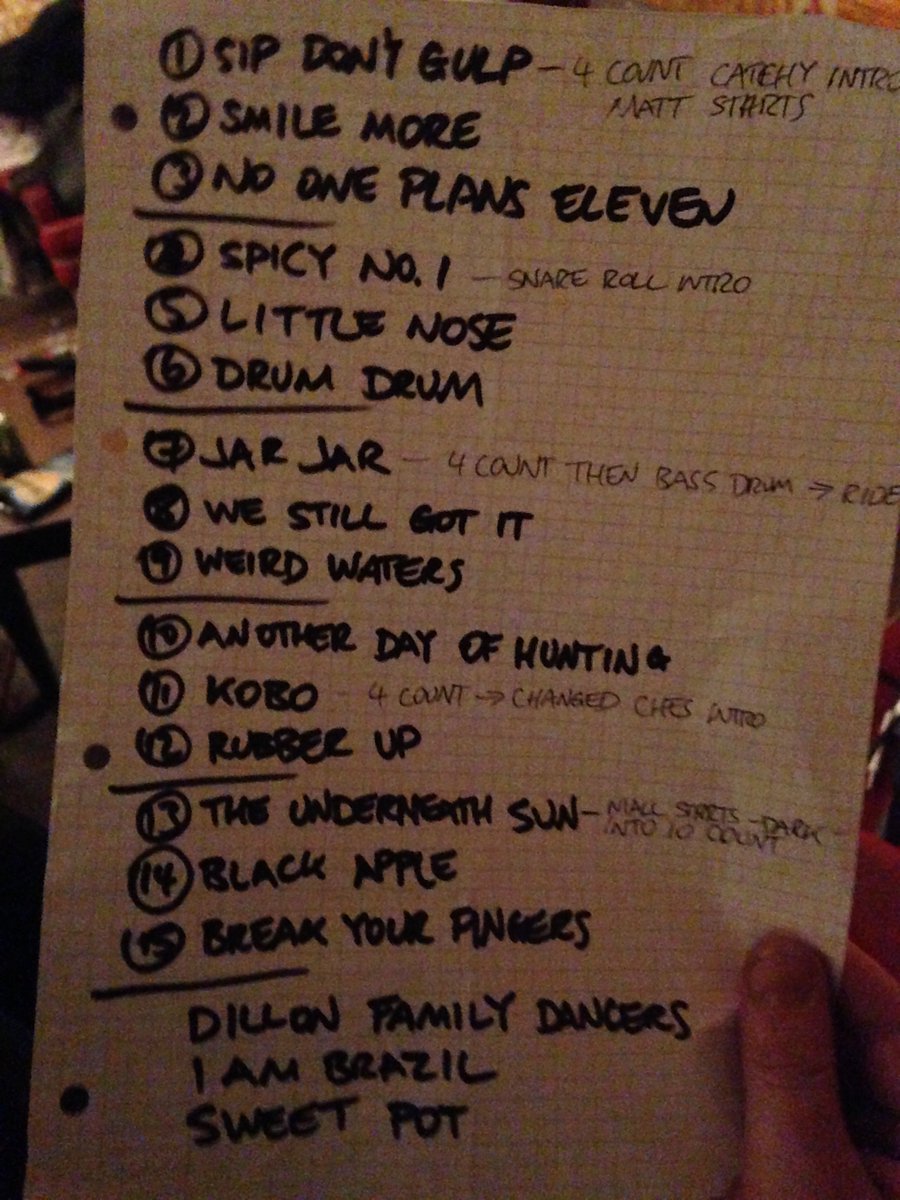 ① SIP DON'T GULP – 4 COUNT CATCHY INTRO
MATT STARTS
② SMILE MORE
③ NO ONE PLANS ELEVEN
④ SPICY NO. 1 – SNARE ROLL INTRO
⑤ LITTLE NOSE
⑥ DRUM DRUM
⑦ JAR JAR – 4 COUNT THEN BASS DRUM → RIDE
⑧ WE STILL GOT IT
⑨ WEIRD WATERS
⑩ ANOTHER DAY OF HUNTING
⑪ KOBO – 4 COUNT → CHANGED CHES INTRO
⑫ RUBBER UP
⑬ THE UNDERNEATH SUN – NIALL STARTS – DARK –
INTO 10 COUNT
⑭ BLACK APPLE
⑮ BREAK YOUR FINGERS
DILLON FAMILY DANCERS
I AM BRAZIL
SWEET POT